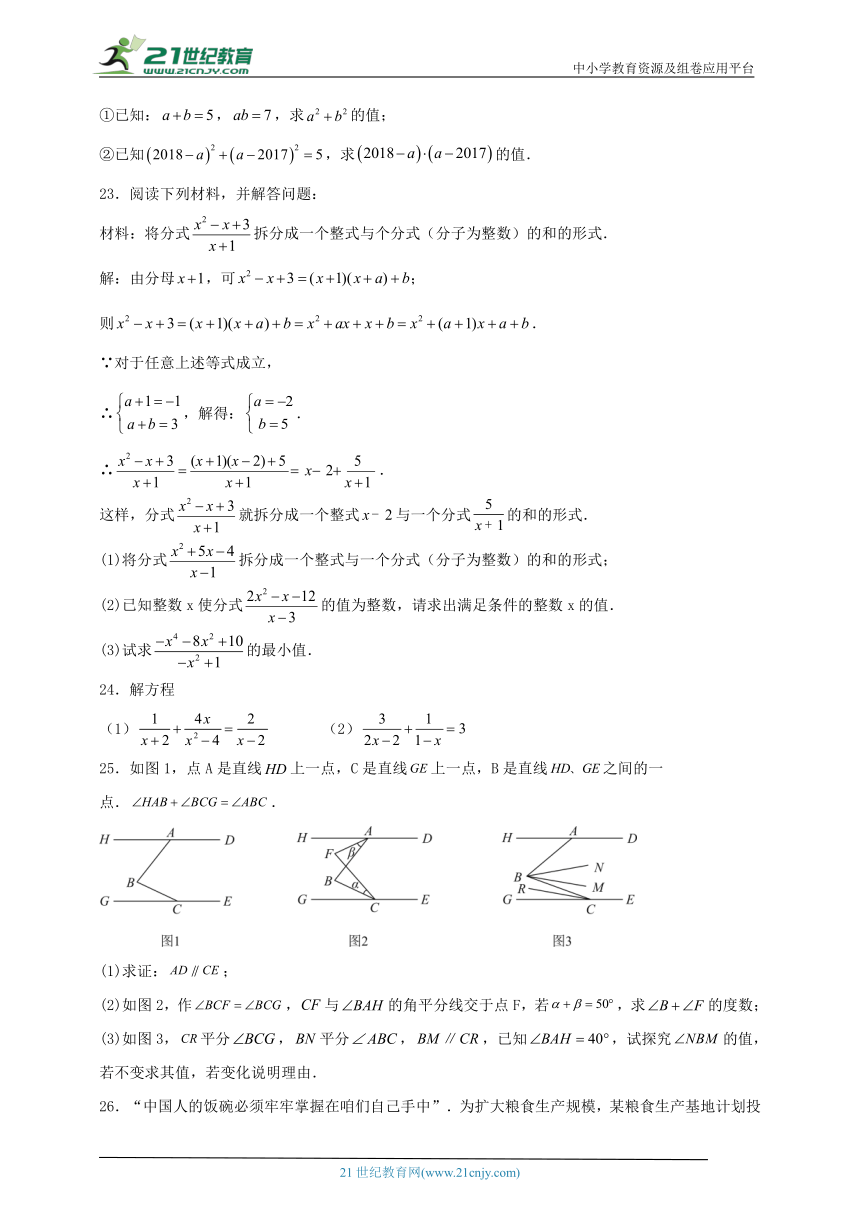 21世纪教育
www.21cnjy.com
中小学教育资源及组卷应用平台
①已知：a+b=5，ab=7，求a²+b²的值；
②已知(2018-a)²+(a-2017)²=5，求(2018-a)·(a-2017)的值．
23．阅读下列材料，并解答问题：
材料：将分式(x²-x+3)/(x+1)拆分成一个整式与个分式（分子为整数）的和的形式．
解：由分母x+1，可x²-x+3=(x+1)(x+a)+b；
则x²-x+3=(x+1)(x+a)+b=x²+ax+x+b=x²+(a+1)x+a+b．
∵对于任意上述等式成立，
∴{a+1=-1, a+b=3，解得：{a=-2, b=5．
∴(x²-x+3)/(x+1)=((x+1)(x-2)+5)/(x+1)=x-2+5/(x+1)．
这样，分式(x²-x+3)/(x+1)就拆分成一个整式x-2与一个分式5/(x+1)的和的形式．
(1)将分式(x²+5x-4)/(x-1)拆分成一个整式与一个分式（分子为整数）的和的形式；
(2)已知整数x使分式(2x²-x-12)/(x-3)的值为整数，请求出满足条件的整数x的值．
(3)试求(-x⁴-8x²+10)/(-x²+1)的最小值．
24．解方程
（1）1/(x+2)+4x/(x²-4)=2/(x-2) （2）3/(2x-2)+1/(1-x)=3
25．如图1，点A是直线HD上一点，C是直线GE上一点，B是直线HD、GE之间的一
点．∠HAB+∠BCG=∠ABC．
H A D B G C E
H A D F β B α G C E
H A D N B M R G C E
图1 图2 图3
(1)求证：AD∥CE；
(2)如图2，作∠BCF=∠BCG，CF与∠BAH的角平分线交于点F，若α+β=50°，求∠B+∠F的度数；
(3)如图3，CR平分∠BCG，BN平分∠ABC，BM∥CR，已知∠BAH=40°，试探究∠NBM的值，
若不变求其值，若变化说明理由．
26．“中国人的饭碗必须牢牢掌握在咱们自己手中”．为扩大粮食生产规模，某粮食生产基地计划投
21世纪教育网(www.21cnjy.com)